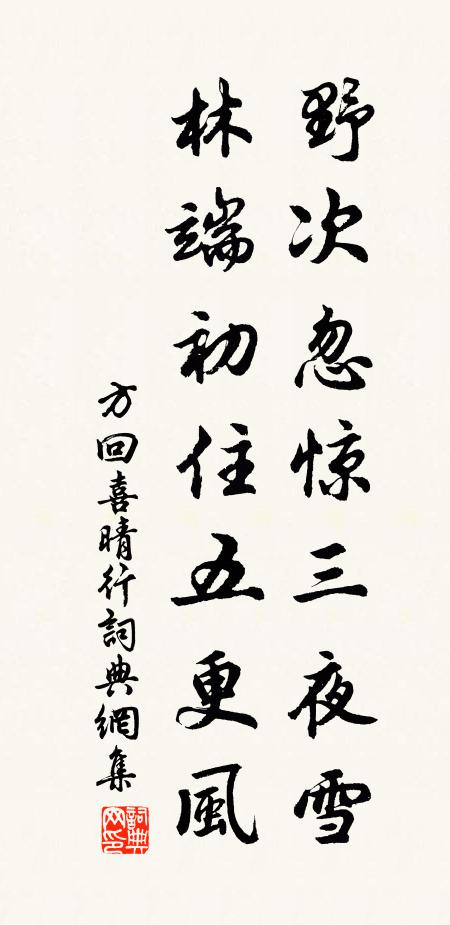 野次忽惊三夜雪
林端初住五更風
方回喜晴行詞典網集
詞典網印